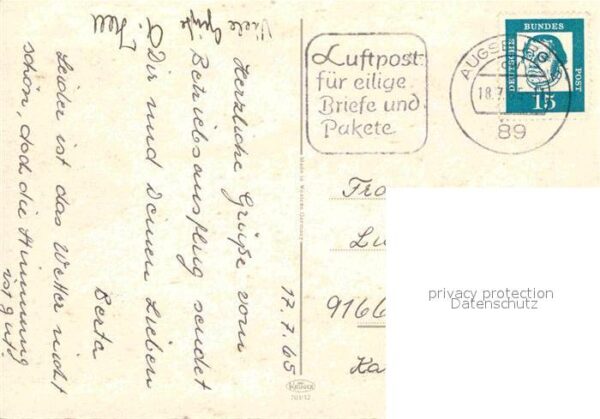 17.7.65
Herzliche Grüße vom
Betriebsausflug sendet
Dir und Deinen Lieben
Berta
Leider ist das Wetter nicht
schön, doch die Stimmung
ist gut!
Viele Grüße
Luftpost
für eilige
Briefe und
Pakete
AUGSBURG
18.7.
89
DEUTSCHE
BUNDES
POST
15
Made in Western Germany
Fra
Lu
9166
Ka
KRÜGER
privacy protection
Datenschutz